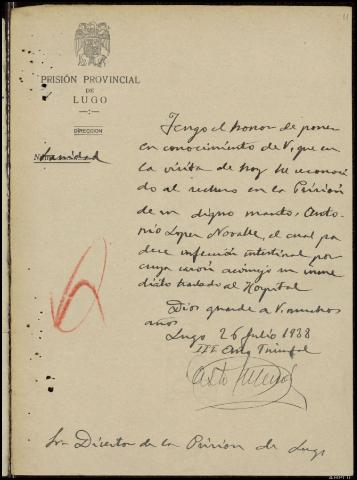 11
PRISIÓN PROVINCIAL
DE
LUGO
DIRECCION
Sanidad
Tengo el honor de poner
en conocimiento de V, que en
la visita de hoy he reconoci
do al recluso en la Prisión
de su digno mando, Anto-
nio Lopez Novalle, el cual pa
dece infección intestinal por
cuya razón aconsejo su inme
diato traslado al Hospital
Dios guarde a V. muchos
años
Lugo 26 Julio 1938
III Año Triunfal
Sr. Director de la Prision de Lugo